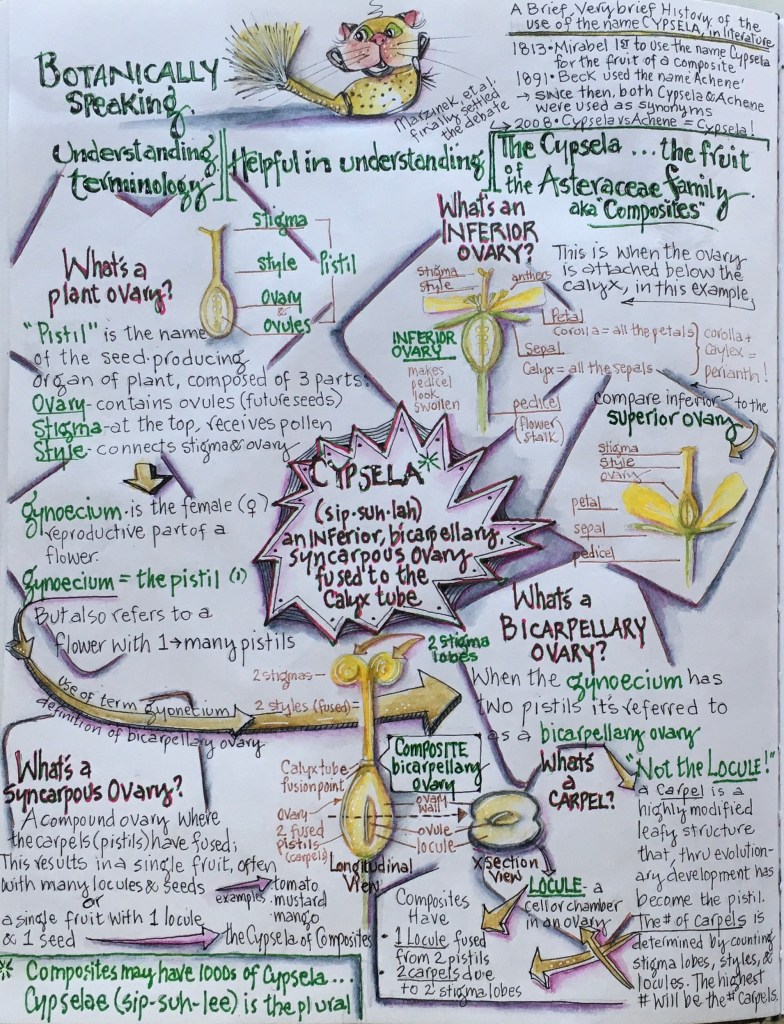 A Brief, Very brief History of the
use of the name CYPSELA, in literature
1813 • Mirabel 1st to use the name Cypsela
for the fruit of a composite
1891 • Beck used the name 'Achene'
→ since then, both Cypsela & Achene
were used as synonyms
→ 2008 • Cypsela vs Achene = Cypsela!
Marzinek, et.al.
finally settled
the debate
BOTANICALLY
Speaking
Understanding
terminology
Helpful in understanding
The Cypsela ... the fruit
of the Asteraceae family.
aka "Composites"
What's a
plant ovary?
stigma
style
Ovary
&
ovules
Pistil
"Pistil" is the name
of the seed-producing
organ of plant, composed of 3 parts:
Ovary - contains ovules (future seeds)
Stigma - at the top, receives pollen
Style - connects stigma & ovary
gynoecium - is the female (♀)
reproductive part of a
flower.
gynoecium = the pistil (1)
But also refers to a
flower with 1 → many pistils
use of term gyonecium
definition of bicarpellary ovary
What's an
INFERIOR
OVARY?
This is when the ovary
is attached below the
calyx, in this example,
stigma
style
anthers
Petal
Corolla = all the petals
Sepal
Calyx = all the sepals
corolla +
Caylex =
perianth!
INFERIOR
OVARY
makes
pedicel
look
swollen
pedicel
(flower
stalk)
Compare inferior to the
superior ovary
stigma
style
ovary
petal
sepal
pedicel
CYPSELA *
(sip·suh·lah)
an inferior, bicarpellary,
syncarpous ovary
fused to the
Calyx tube
What's a
BICARPELLARY
OVARY?
When the gynoecium has
two pistils it's referred to
as a bicarpellary ovary
2 stigma
lobes
2 stigmas
2 styles (fused) =
Calyx tube
fusion point
Ovary
2 fused
pistils
(carpels)
COMPOSITE
bicarpellary
ovary
ovary
wall
ovule
locule
Longitudinal
View
X section
view
What's a
Syncarpous Ovary?
A compound ovary where
the carpels (pistils) have fused;
This results in a single fruit, often
with many locules & seeds
examples
tomato
mustard
mango
or
a single fruit with 1 locule
& 1 seed
the Cypsela of Composites
What's
a
CARPEL?
"Not the LOCULE!"
a Carpel is a
highly modified
leafy structure
that, thru evolution-
ary development has
become the pistil.
The # of Carpels is
determined by counting
stigma lobes, styles, &
locules. The highest
# will be the # carpels.
LOCULE - a
cell or chamber
in an ovary
Composites
Have
• 1 Locule fused
from 2 pistils
• 2 carpels due
to 2 stigma lobes
* Composites may have 1000s of Cypsela...
Cypselae (sip-suh-lee) is the plural